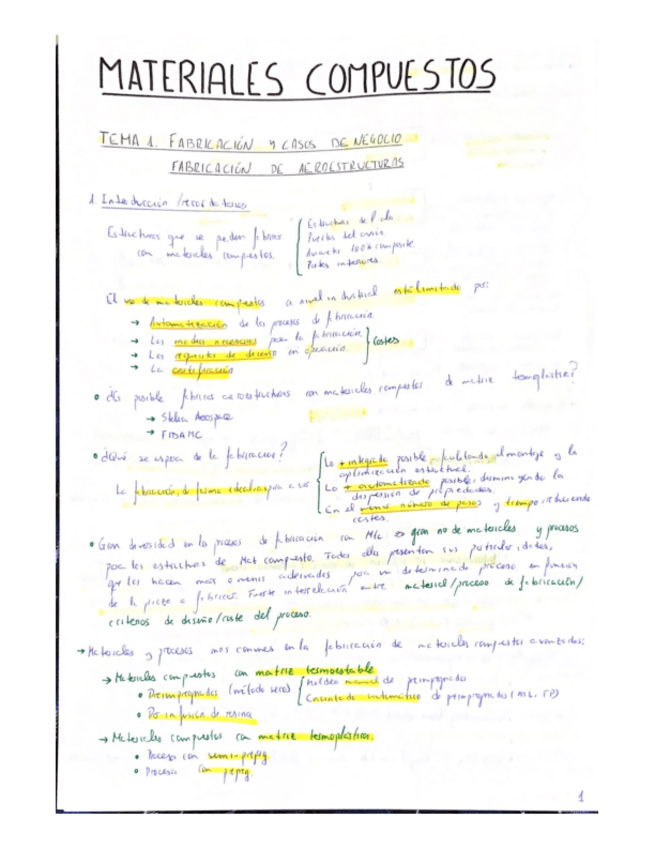 MATERIALES COMPUESTOS
TEMA 1. FABRICACIÓN Y CASOS DE NEGOCIO
FABRICACIÓN DE AEROESTRUCTURAS
1. Introducción /
Estructuras que se pueden fabricar
con materiales compuestos.
Estructuras del ala
Puertas del avión.
100% composite.
Partes interiores.
El uso de materiales compuestos a nivel industrial está limitado por:
→ Automatización de los procesos de fabricación.
→ Los medios necesarios para la fabricación.
→ Los requisitos de diseño en operación.
→ La certificación
Costes
• ¿Es posible fabricar aeroestructuras con materiales compuestos de matriz termoplástica?
→ Stelia Aerospace
→ FIDAMC
• ¿Qué se espera de la fabricación?
La fabricación, de forma ideal aspira a ser
Lo + integrada posible, facilitando el montaje y la
optimización estructural.
Lo + automatizada posible, disminuyendo la
dispersión de propiedades.
En el menor número de pasos y tiempo, reduciendo
costes.
• Gran diversidad en los procesos de fabricación con Mtc gran nº de materiales y procesos
para las estructuras de Mat compuesto. Todos ellos presentan sus particularidades,
que los hacen más o menos adecuados para un determinado proceso en función
de la pieza a fabricar. Fuerte interrelación entre material/proceso de fabricación/
criterios de diseño/coste del proceso.
→ Materiales y procesos más comunes en la fabricación de materiales compuestos avanzados:
→ Materiales compuestos con matriz termoestable
• Preimpregnados (método seco)
Moldeo manual de preimpregnados
Encintado automático de preimpregnados
• Por infusión de resina
→ Materiales compuestos con matriz termoplástica.
• Proceso con semi-prepreg
• Proceso con prepreg.
1